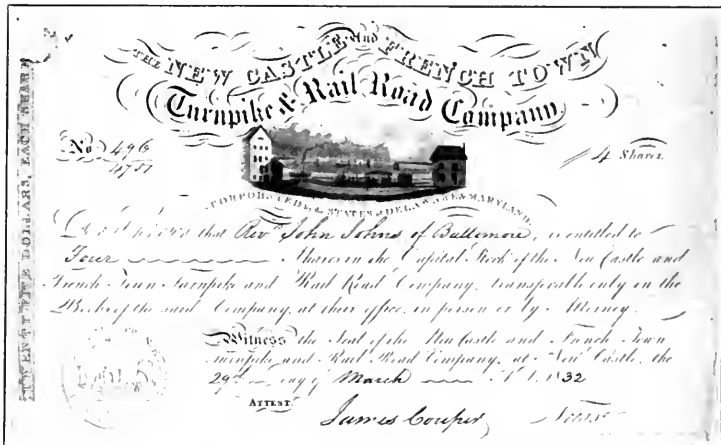 THE NEW CASTLE and FRENCH TOWN
Turnpike & Rail Road Company
No 496
4 Shares
INCORPORATED by the STATES of DELAWARE & MARYLAND
TWENTY FIVE DOLLARS, EACH SHARE
that Rev John Johns of Baltimore, is entitled to
Four Shares in the Capital Stock of the New Castle and
French Town Turnpike and Rail Road Company, transferable only on the
Books of the said Company, at their office, in person or by Attorney.
Witness the Seal of the New Castle and French Town
Turnpike and Rail Road Company, at New Castle, the
29th day of March A.D. 1832
ATTEST.
James Couper,